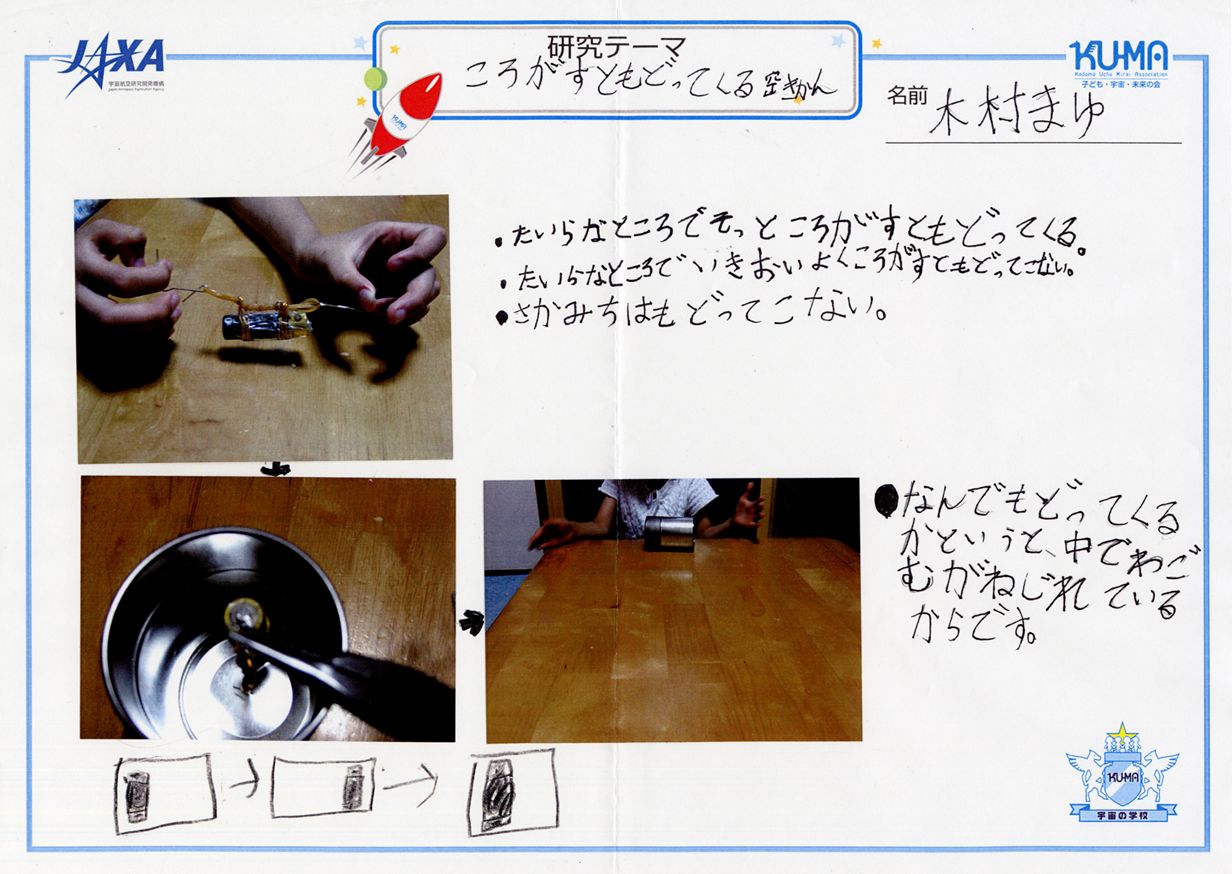 JAXA
宇宙航空研究開発機構
Japan Aerospace Exploration Agency
研究テーマ
ころがすともどってくる空きかん
KUMA
KUMA
Kadoma Uchu Mirai Association
子ども・宇宙・未来の会
名前 木村まゆ
・たいらなところでそっところがすともどってくる。
・たいらなところでいきおいよくころがすともどってこない。
・さかみちはもどってこない。
●なんでもどってくる
かというと、中でわご
むがねじれている
からです。
KUMA
宇宙の学校